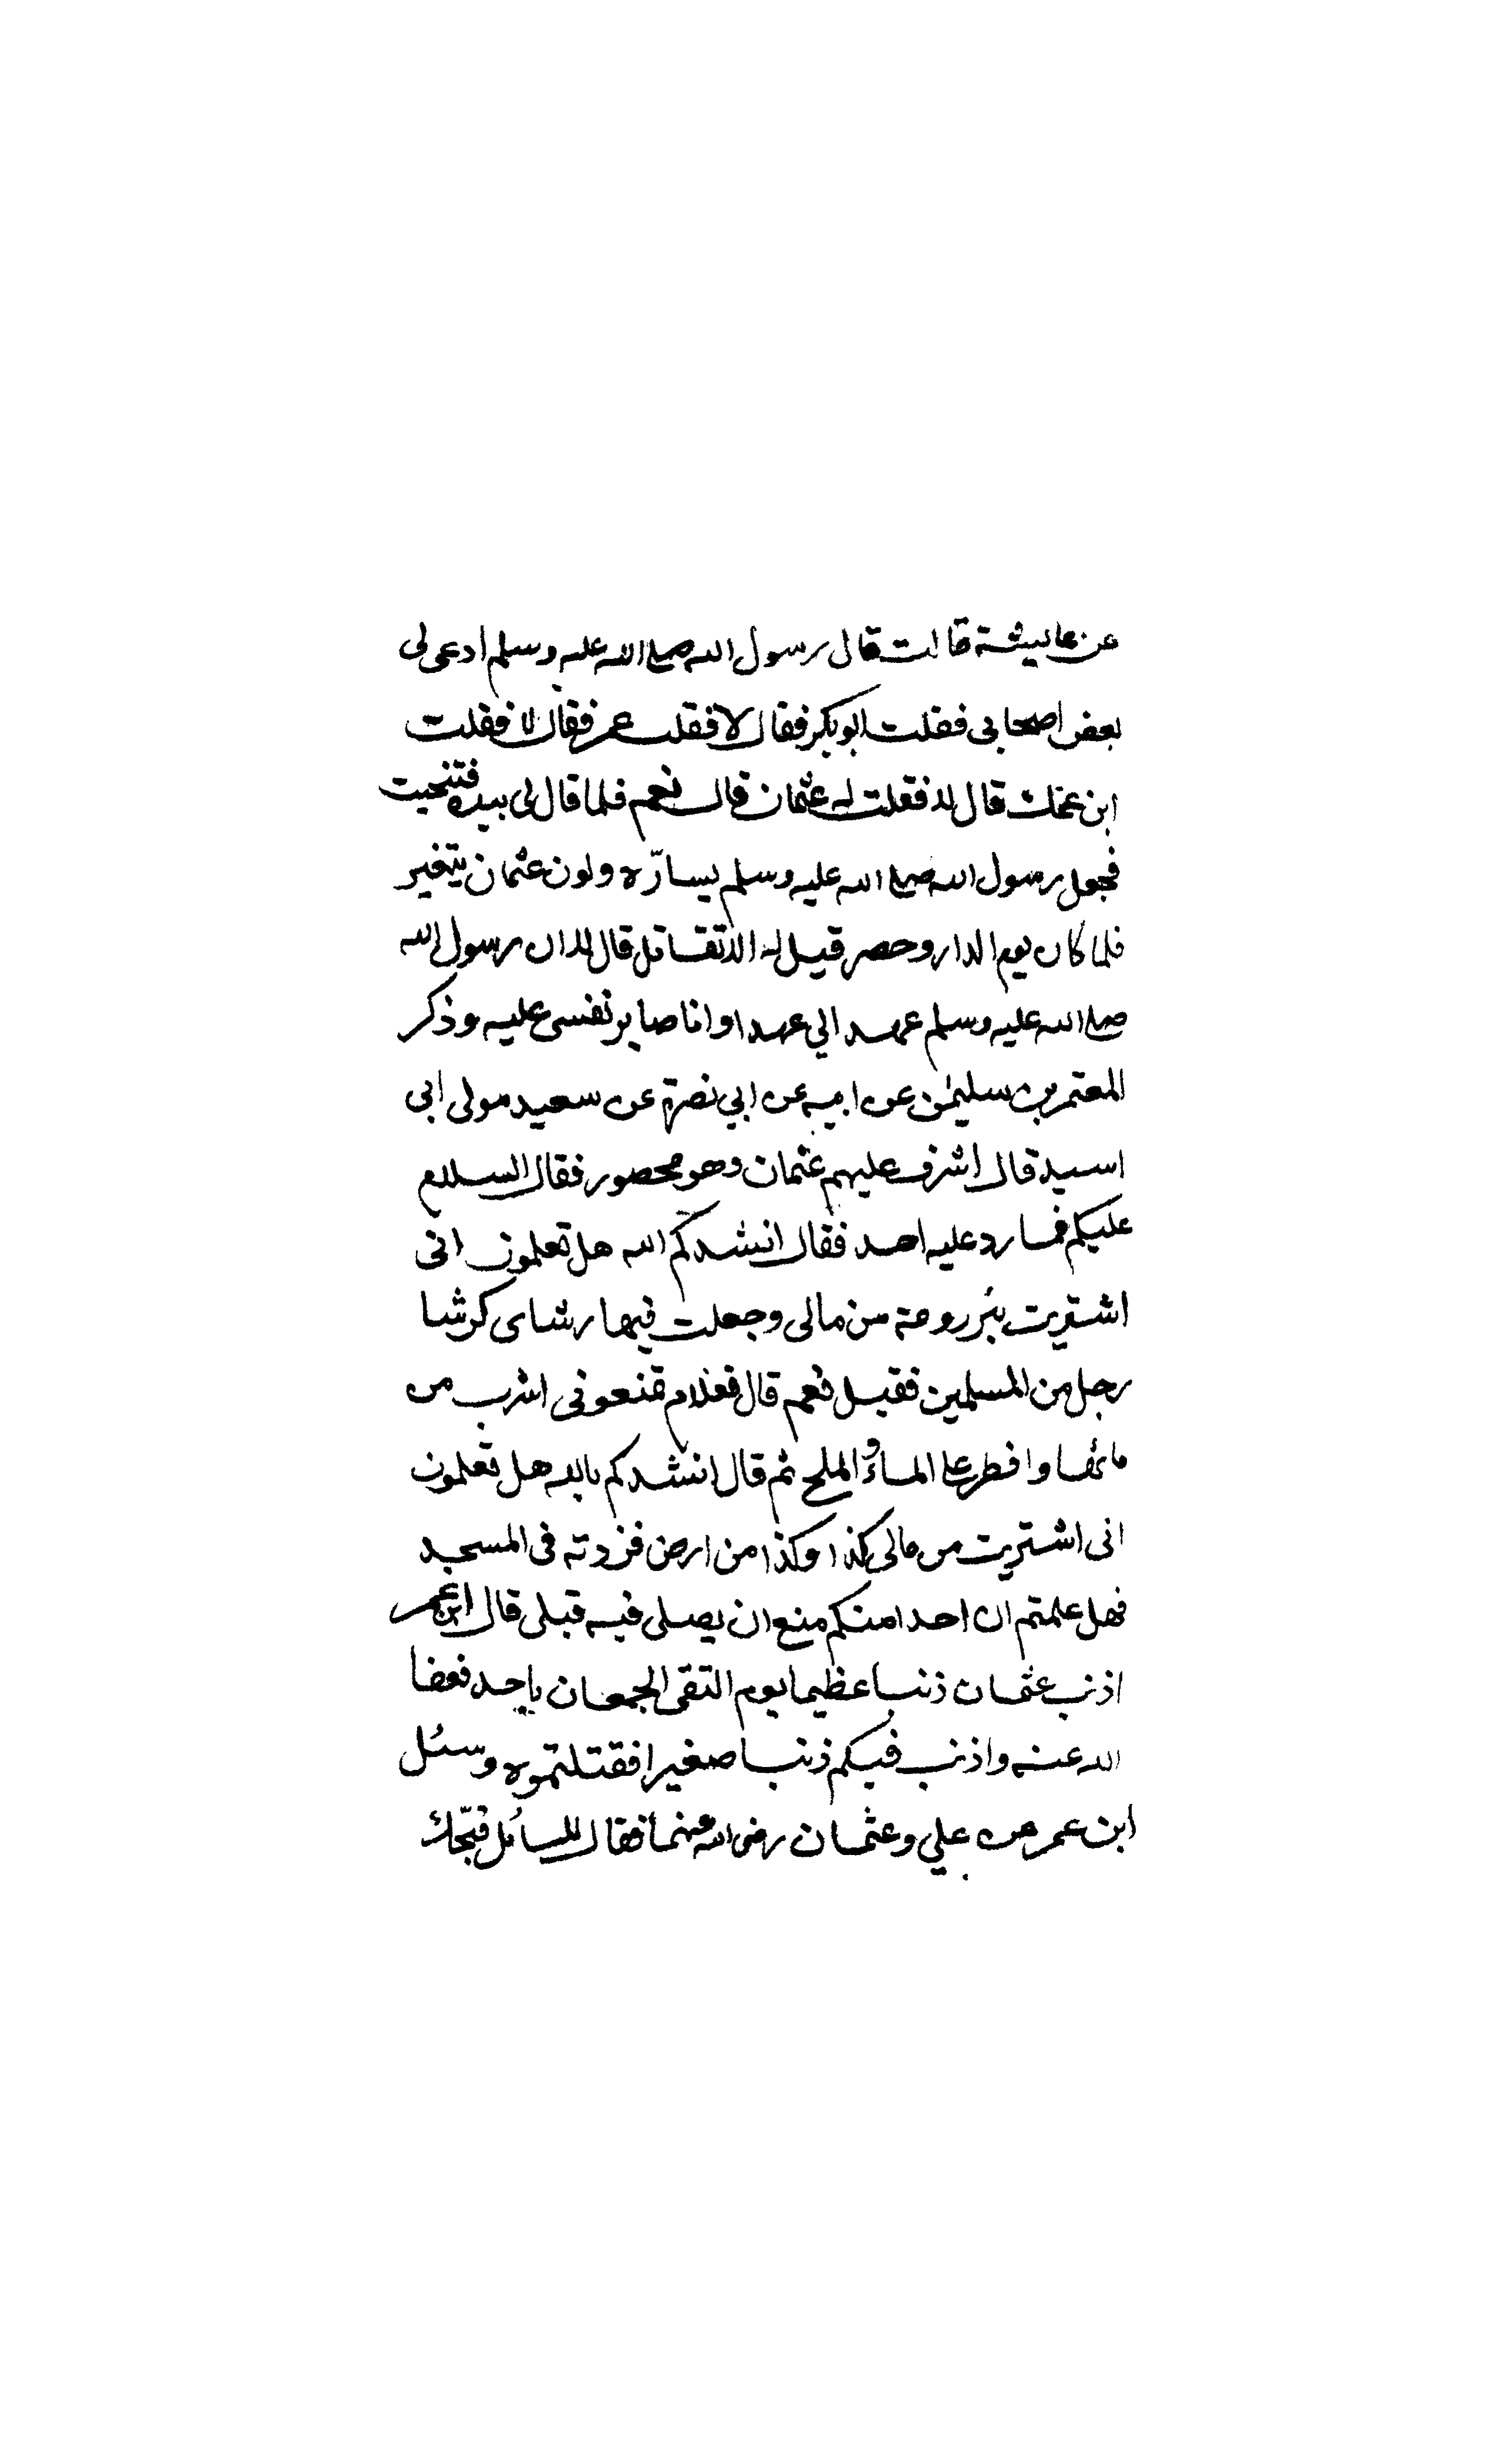 عن عاليشة قالت قال رسول الله صلى الله عليه وسلم ادعى لى
بعض اصحابى فقلت ابو بكر فقال لا فقلت عمر فقال لا فقلت
ابن عمك قال لا فقلت له عثمان قال نعم فلما قال لى بيده فتنحيت
فجعل رسول الله صلى الله عليه وسلم يسارّه ولون عثمان يتغير
فلما كان يوم الدار وحصر قيل له الا تقاتل قال لا ان رسول الله
صلى الله عليه وسلم عهد الي عهدا وانا صابر نفسى عليه وذكر
المعتمر بن سليمن عن ابيه عن ابي نضرة عن سعيد مولى ابى
اسيد قال اشرف عليهم عثمان وهو محصور فقال السلام
عليكم فما رد عليه احد فقال انشدكم الله هل تعلمون انى
اشتريت بئر رومة من مالى وجعلت فيها رشاى كرشا
رجل من المسلمين فقيل نعم قال فعلام تمنعونى اشرب من
مائها وافطر على الماء والملح ثم قال انشدكم بالله هل تعلمون
انى اشتريت من مالى كذا وكذا من ارض فزدته فى المسجد
فهل علمتم ان احدا منكم منع ان يصلى فيه قبلى قال ابن عمر
اذنب عثمان ذنبا عظيما يوم التقى الجمعان باحد فعفا
الله عنه واذنب فيكم ذنبا صغيرا فقتلتموه وسئل
ابن عمر عن علي وعثمان رضى الله عنهما فقال للسائل قبّحك